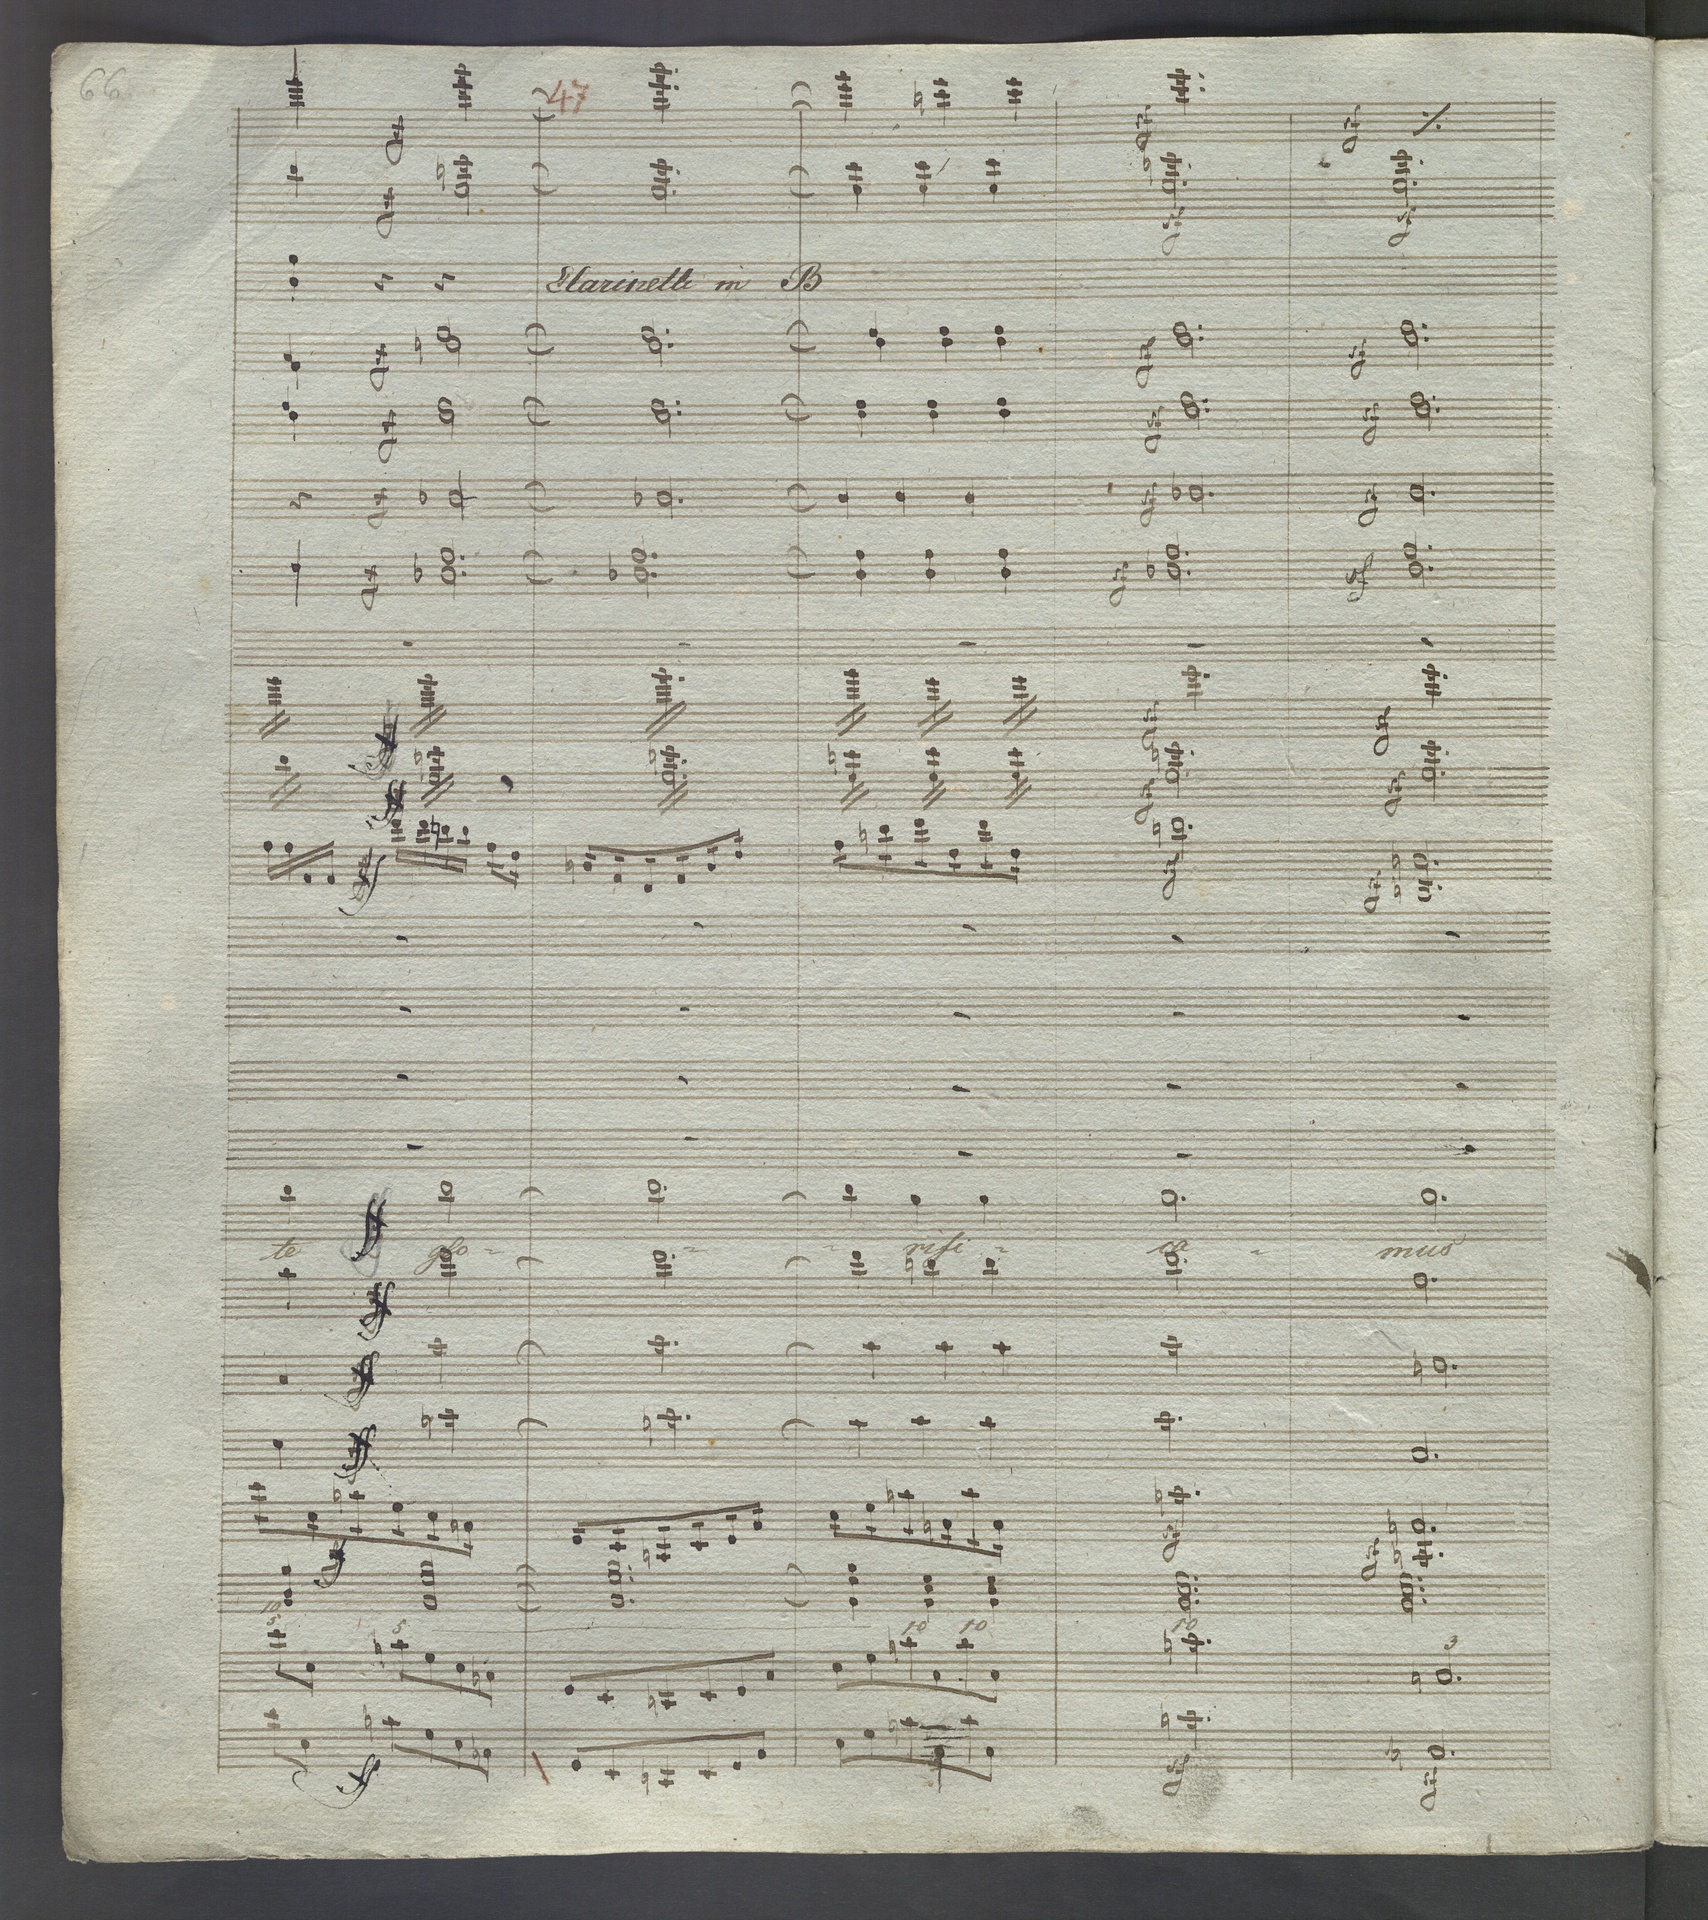 66
47
Clarinetti in B
te glo - - - rifi - ca - mus
10
5 5 10 10 10 3